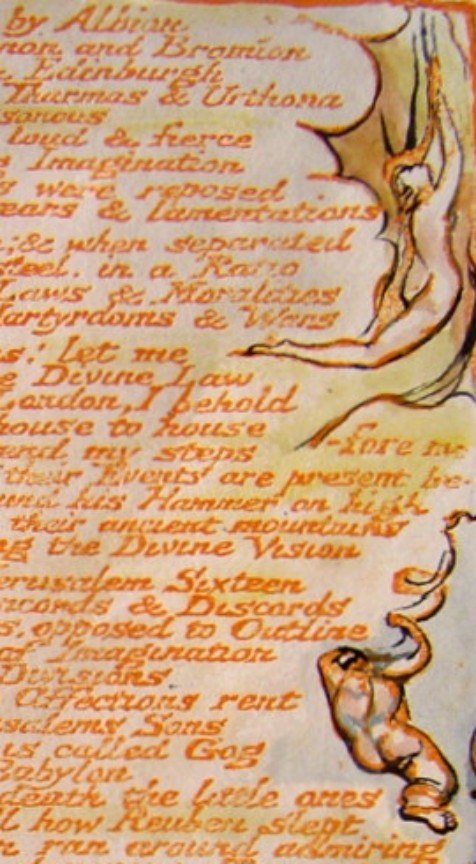 by Albion
and Bromion
Edinburgh
Tharmas & Urthona
loud & fierce
Imagination
were reposed
ears & lamentations
& when separated
steel, in a Ratio
Laws & Moralities
Martyrdoms & Wars
let me
Divine Law
London, I behold
house to house
and my steps -fore me
their Events are present be-
his Hammer on high
their ancient mountains
the Divine Vision
erusalem Sixteen
& Discords
opposed to Outline
of Imagination
Divisions
Affections rent
usalems Sons
is called Gog
Babylon
death the little ones
how Reuben slept
ran around admiring